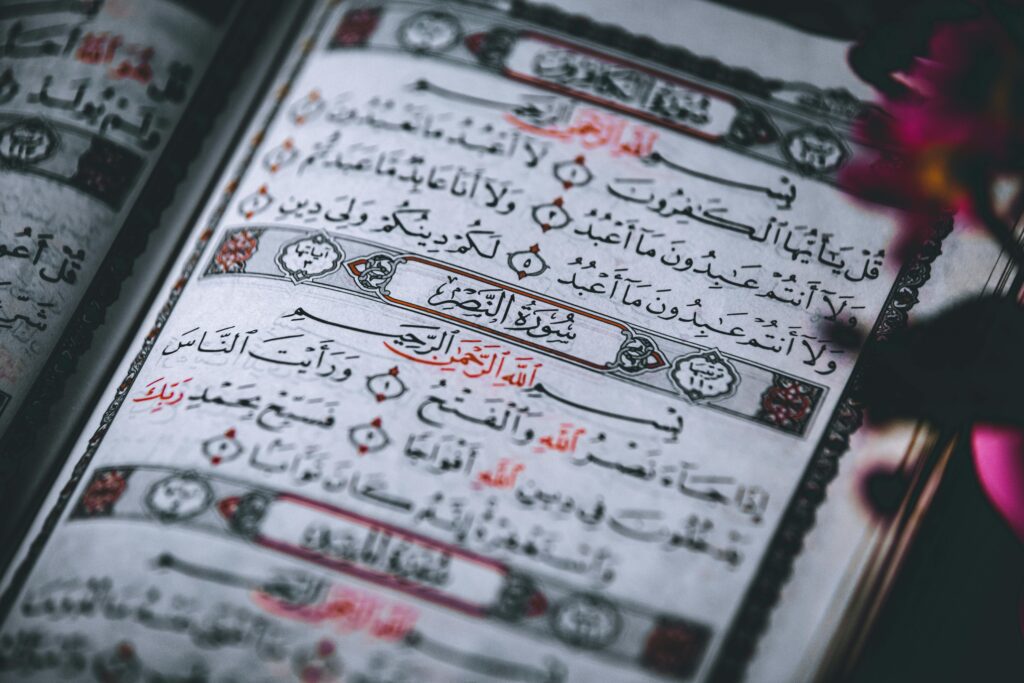 سُورَةُ الكَافِرُونَ
بِسْمِ ٱللَّهِ ٱلرَّحْمَٰنِ ٱلرَّحِيمِ
قُلْ يَٰٓأَيُّهَا ٱلْكَٰفِرُونَ ١ لَآ أَعْبُدُ مَا تَعْبُدُونَ ٢
وَلَآ أَنتُمْ عَٰبِدُونَ مَآ أَعْبُدُ ٣ وَلَآ أَنَا۠ عَابِدٌ مَّا عَبَدتُّمْ ٤
وَلَآ أَنتُمْ عَٰبِدُونَ مَآ أَعْبُدُ ٥ لَكُمْ دِينُكُمْ وَلِىَ دِينِ ٦
ترتيبها ١١٠ سُورَةُ النَّصْرِ آياتها ٣
بِسْمِ ٱللَّهِ ٱلرَّحْمَٰنِ ٱلرَّحِيمِ
إِذَا جَآءَ نَصْرُ ٱللَّهِ وَٱلْفَتْحُ ١ وَرَأَيْتَ ٱلنَّاسَ
يَدْخُلُونَ فِى دِينِ ٱللَّهِ أَفْوَاجًا ٢ فَسَبِّحْ بِحَمْدِ رَبِّكَ
وَٱسْتَغْفِرْهُ إِنَّهُۥ كَانَ تَوَّابًۢا ٣
بِسْمِ ٱللَّهِ ٱلرَّحْمَٰنِ ٱلرَّحِيمِ
قُلْ هُوَ ٱللَّهُ
وَلَمْ يُولَدْ